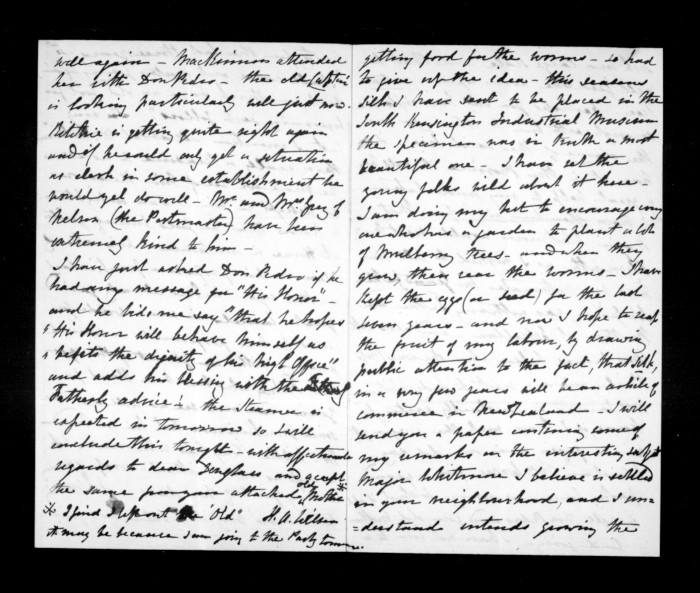 well again - MacKinnon attended
her with Don Pedro - the old Captn
is looking particularly well just now -
Ritchie is getting quite right again
and if he could only get a situation
as clerk in some establishment he
would yet do well - Mr. and Mrs of
Nelson (the Postmaster) have been
extremely kind to him -
I have just asked Don Pedro if he
had any message for "His Honor" -
and he bids me say "that he hopes
" His Honor will behave himself as
" befits the dignity of his high Office"
and adds his blessing with the
Fatherly advice! the Steamer is
expected in tomorrow so I will
conclude this tonight - with affectionate
regards to dear Douglass and accept
the same from your attached old Mother
※ I find I left out the "Old" H. A. Wilson
it may be because I am going to the Party tomorrow.
getting food for the worms - so had
to give up the idea - this seasons
silk I have sent to be placed in the
South Kensington Industrial Museum
the specimen was in truth a most
beautiful one - I have set the
young folks wild about it here -
I am doing my best to encourage every
one who has a garden to plant a lot
of Mulberry trees - and when they
grow, then rear the worms - I have
kept the eggs (or seed) for the last
seven years - and now I hope to reap
the fruit of my labour, by drawing
public attention to the fact, that silk,
in a very few years will be an article of
commerce in New Zealand - I will
send you a paper containing some of
my remarks on the interesting subject
Major Whitmore I believe is settled
in your neighbourhood, and I un-
-derstand intends growing the